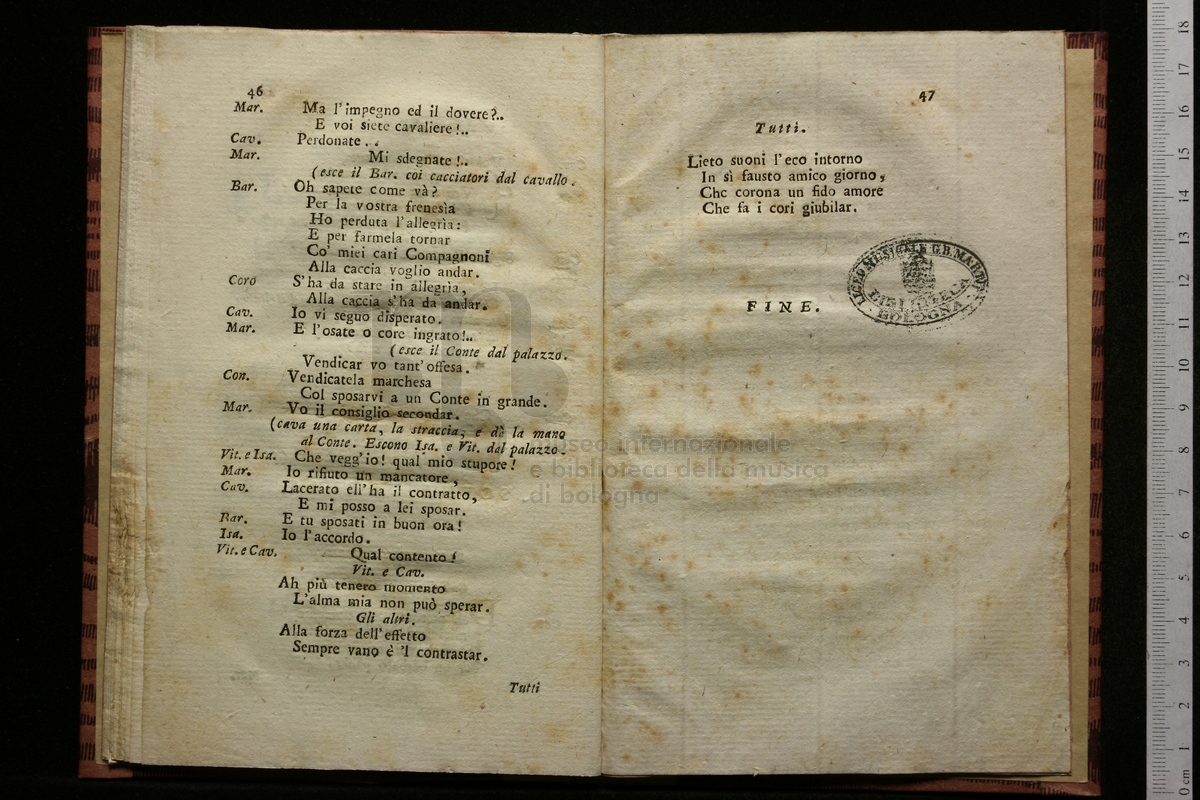 46
Mar. Ma l'impegno ed il dovere?..
E voi siete cavaliere!..
Cav. Perdonate..
Mar. Mi sdegnate!..
(esce il Bar. coi cacciatori dal cavallo.
Bar. Oh sapete come và?
Per la vostra frenesìa
Ho perduta l'allegrìa:
E per farmela tornar
Co' miei cari Compagnoni
Alla caccia voglio andar.
Coro S'ha da stare in allegrìa,
Alla caccia s'ha da andar.
Cav. Io vi seguo disperato.
Mar. E l'osate o core ingrato!..
(esce il Conte dal palazzo.
Vendicar vo tant'offesa.
Con. Vendicatela marchesa
Col sposarvi a un Conte in grande.
Mar. Vo il consiglio secondar.
(cava una carta, la straccia, e dà la mano
al Conte. Escono Isa. e Vit. dal palazzo.
Vit. e Isa. Che vegg'io! qual mio stupore!
Mar. Io rifiuto un mancatore,
Cav. Lacerato ell'ha il contratto,
E mi posso a lei sposar.
Bar. E tu sposati in buon ora!
Isa. Io l'accordo.
Vit. e Cav. Qual contento!
Vit. e Cav.
Ah più tenero momento
L'alma mia non può sperar.
Gli altri.
Alla forza dell'effetto
Sempre vano è 'l contrastar.
Tutti
47
Tutti.
Lieto suoni l'eco intorno
In sì fausto amico giorno,
Che corona un fido amore
Che fa i cori giubilar.
FINE.
LICEO MUSICALE G.B. MARTINI
BIBLIOTECA
BOLOGNA
museo internazionale
e biblioteca della musica
di bologna